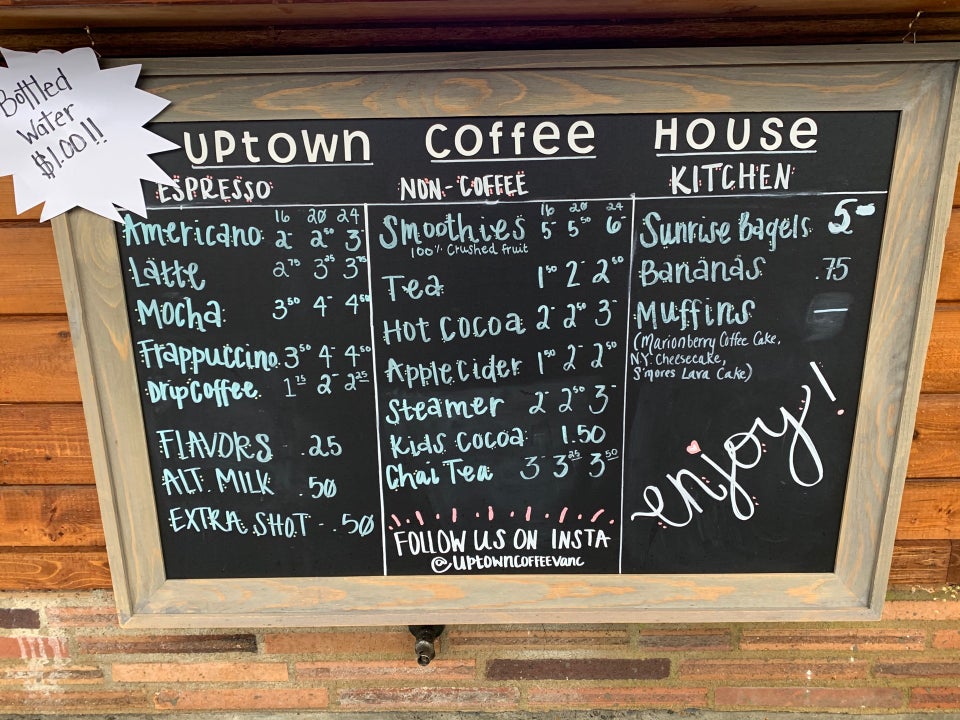 Bottled
Water
$1.00!!
UPtown Coffee House
ESPRESSO
16 20 24
Americano 2- 2.50 3-
Latte 2.75 3.25 3.75
Mocha 3.50 4- 4.50
Frappuccino 3.50 4- 4.50
Drip Coffee 1.75 2- 2.25
FLAVORS .25
ALT. MILK .50
EXTRA SHOT - .50
NON-COFFEE
16 20 24
Smoothies 5- 5.50 6-
100% Crushed fruit
Tea 1.50 2- 2.50
Hot Cocoa 2- 2.50 3-
Apple Cider 1.50 2- 2.50
Steamer 2- 2.50 3-
Kids Cocoa 1.50
Chai Tea 3- 3.25 3.50
FOLLOW US ON INSTA
@uptowncoffeevanc
KITCHEN
Sunrise Bagels 5-
Bananas .75
Muffins —
(Marionberry Coffee Cake,
N.Y. Cheesecake,
S'mores Lava Cake)
enjoy!